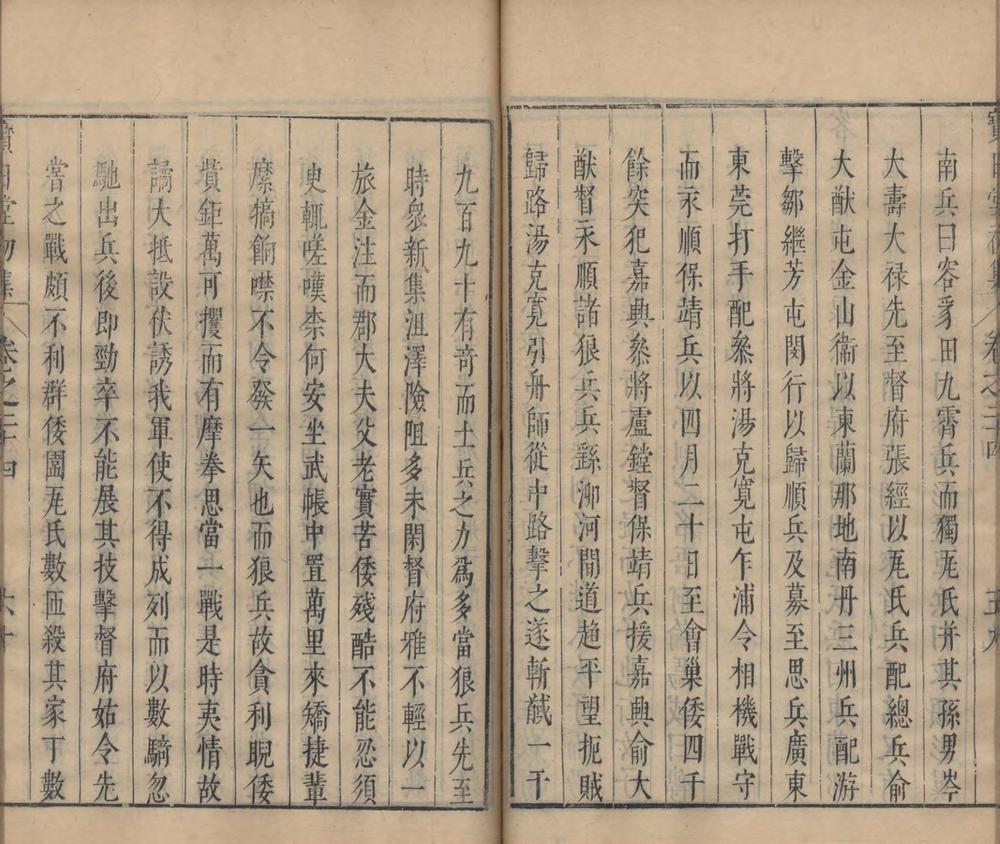 南兵曰容豸田九霄兵而獨瓦氏并其孫男岑
大壽大祿先至督府張經以瓦氏兵配總兵俞
大猷屯金山衞以東蘭那地南丹三州兵配游
擊鄒繼芳屯閔行以歸順兵及募至思兵廣東
東莞打手配叅將湯克寬屯乍浦令相機戰守
而永順保靖兵以四月二十日至會巢倭四千
餘突犯嘉興叅將盧鏜督保靖兵援嘉興俞大
猷督永順諸狼兵兵繇泖河間道趋平望扼賊
歸路湯克寬引舟師從中路擊之遂斬馘一千
五九
九百九十有奇而土兵之力爲多當狼兵先至
時衆新集沮澤險阻多未閑督府雅不輕以一
旅金注而郡大夫父老實苦倭殘酷不能忍須
臾輒嗟嘆柰何安坐武帳中置萬里來矯捷輩
縻犒餉噤不令發一矢也而狼兵故貪利睨倭
貲鉅萬可攫而有摩拳思當一戰是時夷情故
譎大抵設伏誘我軍使不得成列而以數騎忽
馳出兵後即勁卒不能展其技擊督府姑令先
嘗之戰頗不利群倭圍瓦氏數匝殺其家丁數
卷之二十四
六十